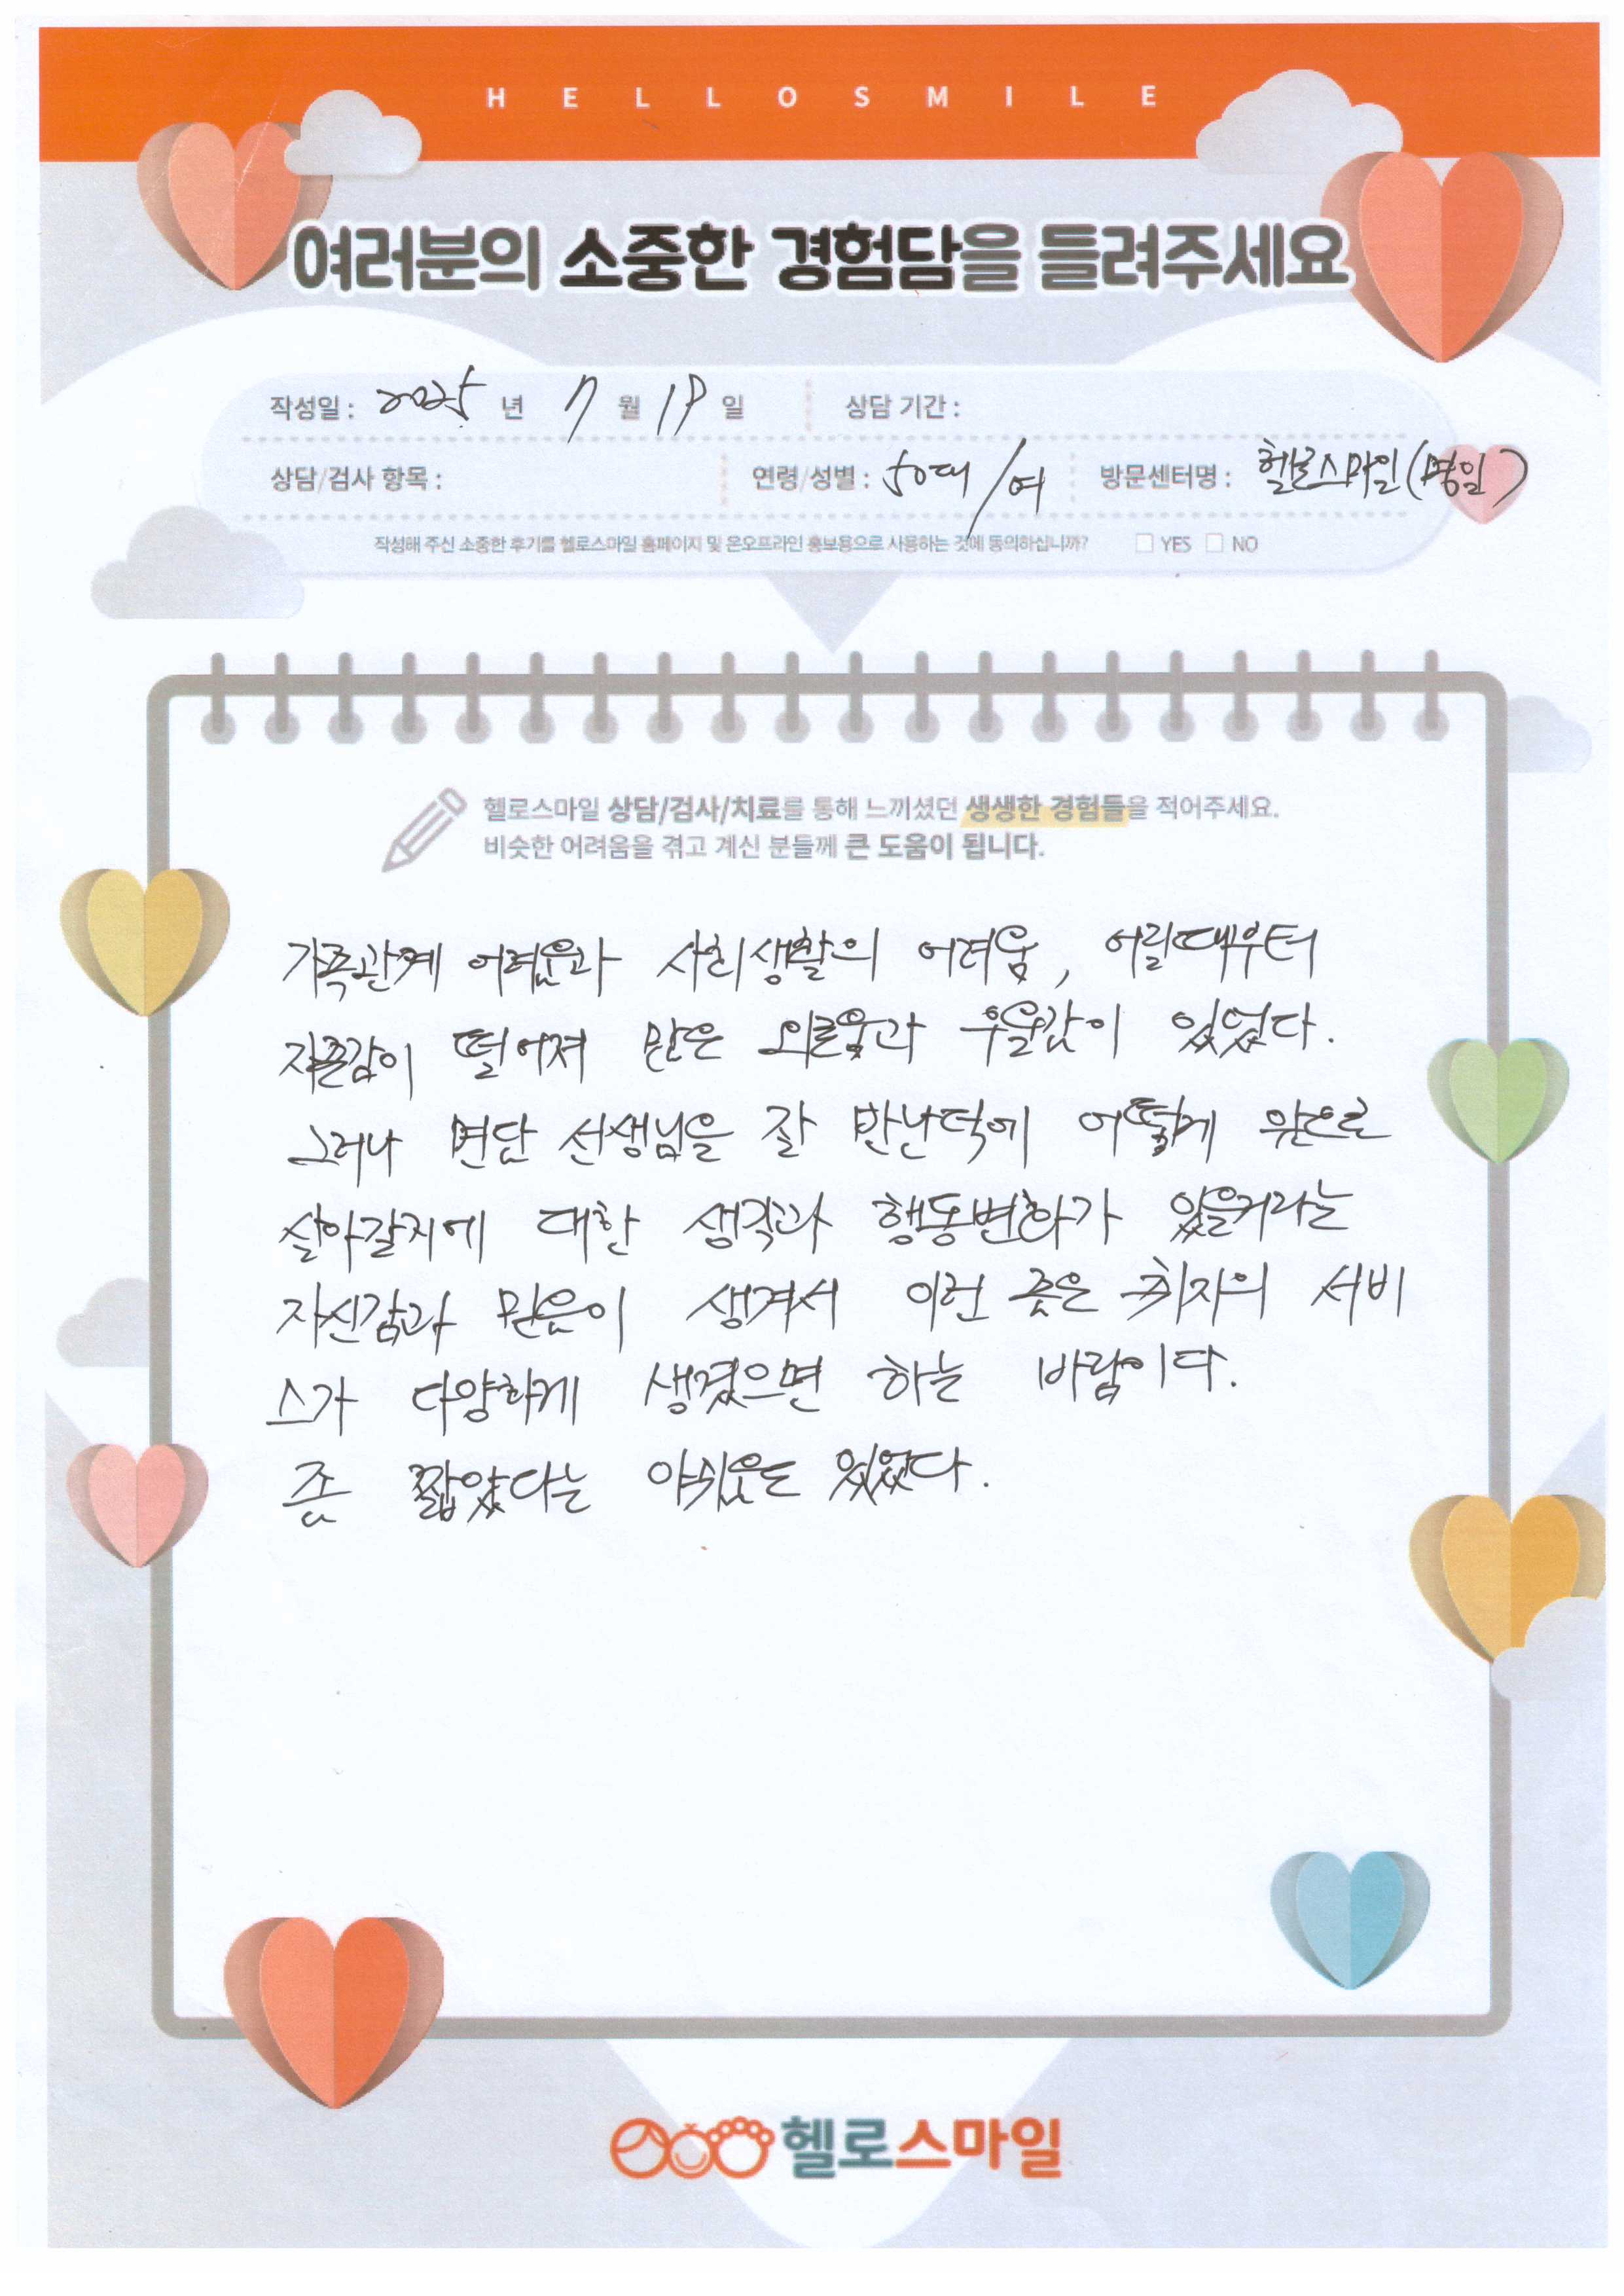 HELLOSMILE
여러분의 소중한 경험담을 들려주세요
작성일 : 2025 년 7 월 19 일 상담 기간 :
상담/검사 항목 : 연령/성별 : 50대/여 방문센터명 : 헬로스마일(명일)
작성해 주신 소중한 후기를 헬로스마일 홈페이지 및 온오프라인 홍보용으로 사용하는 것에 동의하십니까? □ YES □ NO
헬로스마일 상담/검사/치료를 통해 느끼셨던 생생한 경험들을 적어주세요.
비슷한 어려움을 겪고 계신 분들께 큰 도움이 됩니다.
가족관계 어려움과 사회생활의 어려움, 어릴때부터
자존감이 떨어져 많은 외로움과 우울감이 있었다.
그러나 면담 선생님을 잘 만난덕에 어떻게 앞으로
살아갈지에 대한 생각과 행동변화가 있을거라는
자신감과 믿음이 생겨서 이런 좋은 취지의 서비
스가 다양하게 생겼으면 하는 바람이다.
좀 짧았다는 아쉬움도 있었다.
헬로스마일